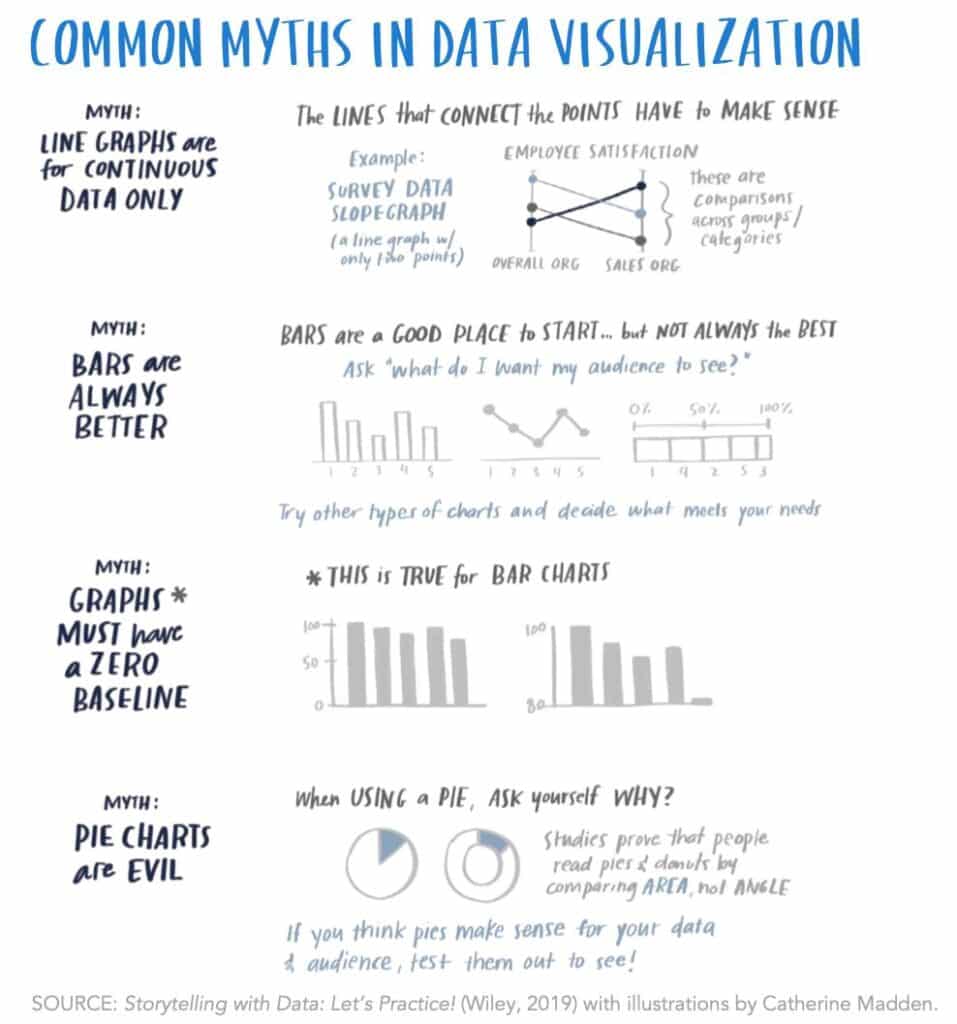 COMMON MYTHS IN DATA VISUALIZATION
MYTH:
LINE GRAPHS are
for CONTINUOUS
DATA ONLY
The LINES that CONNECT the POINTS HAVE to MAKE SENSE
Example:
SURVEY DATA
SLOPEGRAPH
(a line graph w/
only two points)
EMPLOYEE SATISFACTION
OVERALL ORG
SALES ORG
These are
comparisons
across groups/
categories
MYTH:
BARS are
ALWAYS
BETTER
BARS are a GOOD PLACE to START... but NOT ALWAYS the BEST
Ask "what do I want my audience to see?"
1 2 3 4 5
1 2 3 4 5
0% 50% 100%
1 4 2 5 3
Try other types of charts and decide what meets your needs
MYTH:
GRAPHS *
MUST have
a ZERO
BASELINE
* THIS is TRUE for BAR CHARTS
100
50
0
100
80
MYTH:
PIE CHARTS
are EVIL
When USING a PIE, ASK yourself WHY?
Studies prove that people
read pies & donuts by
comparing AREA, not ANGLE
If you think pies make sense for your data
& audience, test them out to see!
SOURCE: Storytelling with Data: Let's Practice! (Wiley, 2019) with illustrations by Catherine Madden.